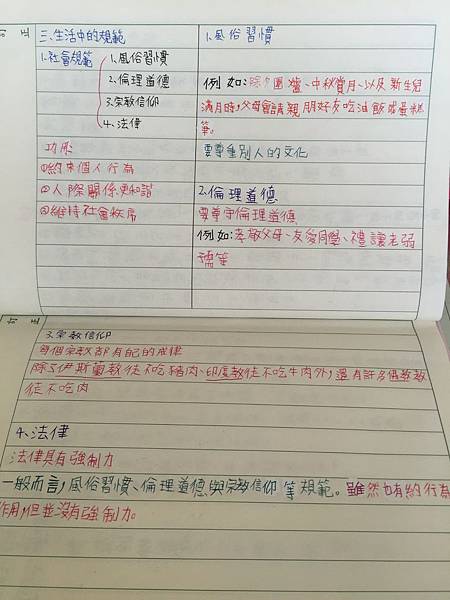 訂正
三.生活中的規範
1.社會規範
1.風俗習慣
2.倫理道德
3.宗教信仰
4.法律
功用
①約束個人行為
②人際關係更和諧
③維持社會秩序
1.風俗習慣
例如:除夕圍爐、中秋賞月、以及新生兒
滿月時,父母會請親朋好友吃油飯或蛋糕
等。
要尊重別人的文化
2.倫理道德
要尊守倫理道德
例如:孝敬父母、友愛同學、禮讓老弱
孺等
訂正
3.宗教信仰
每個宗教都有自己的戒律
除了伊斯蘭教徒不吃豬肉、印度教徒不吃牛肉外,還有許多佛教教
徒不吃肉
4.法律
法律具有強制力
一般而言,風俗習慣、倫理道德與宗教信仰等規範。雖然也有約行為
作用,但並沒有強制力。